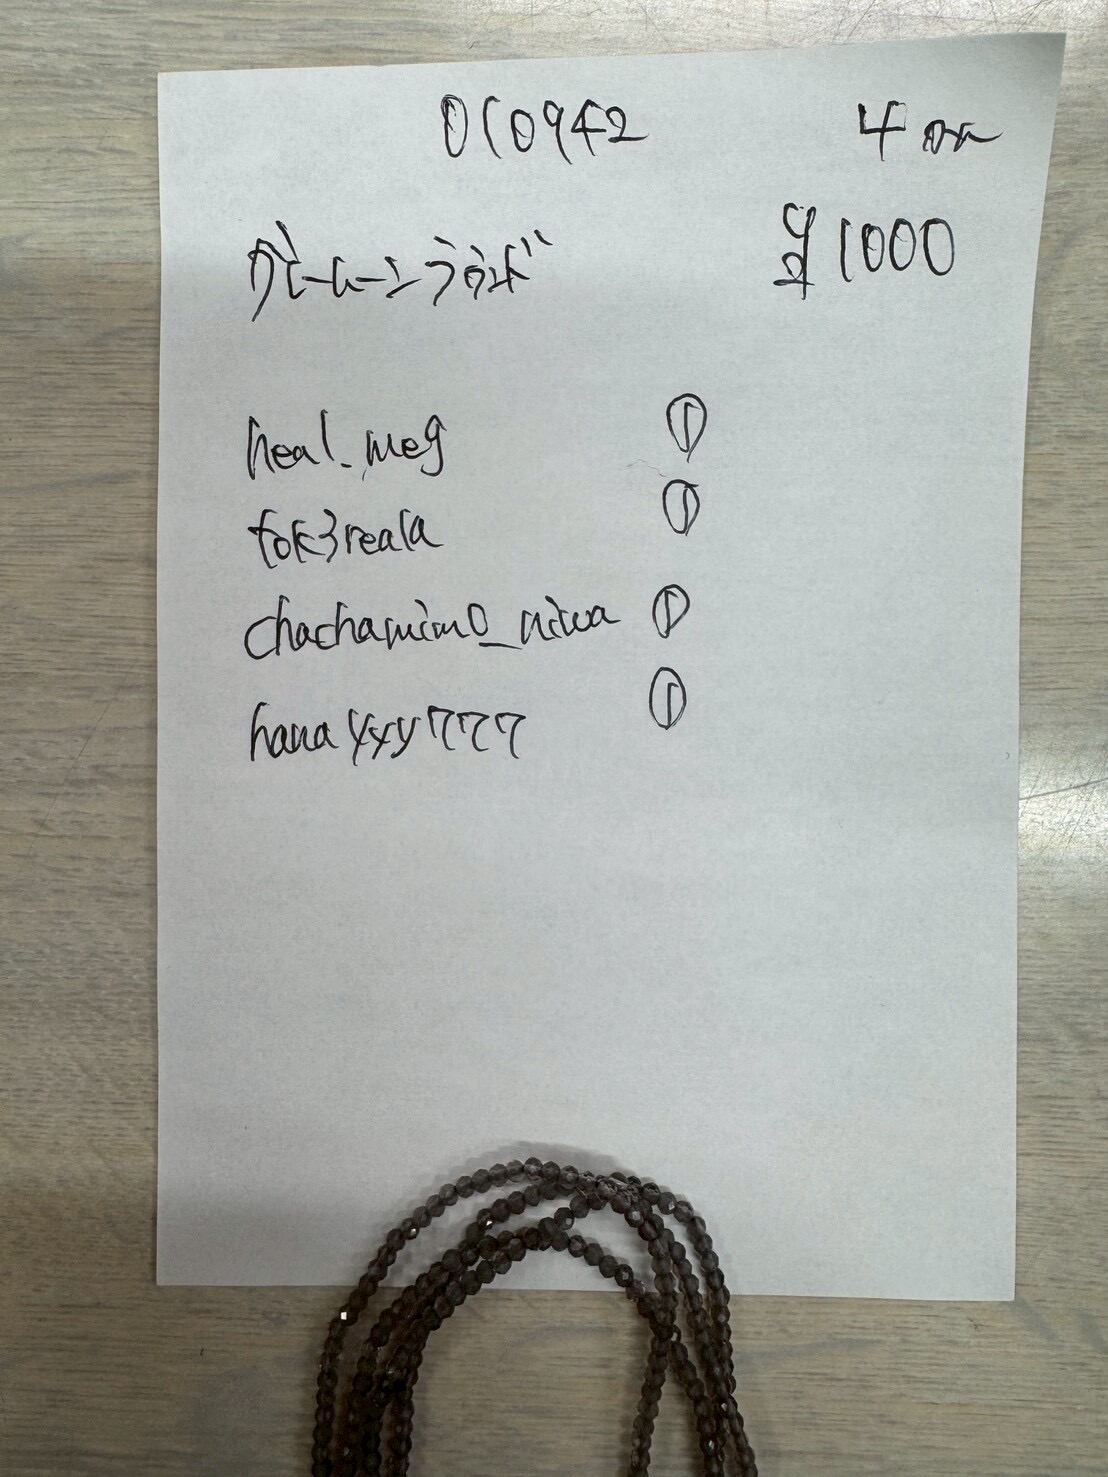 010942 4mm
グレームーンラウンド ¥1000
heal_meg ①
tok3reala ①
chachamim0_niwa ①
hanayyy777 ①